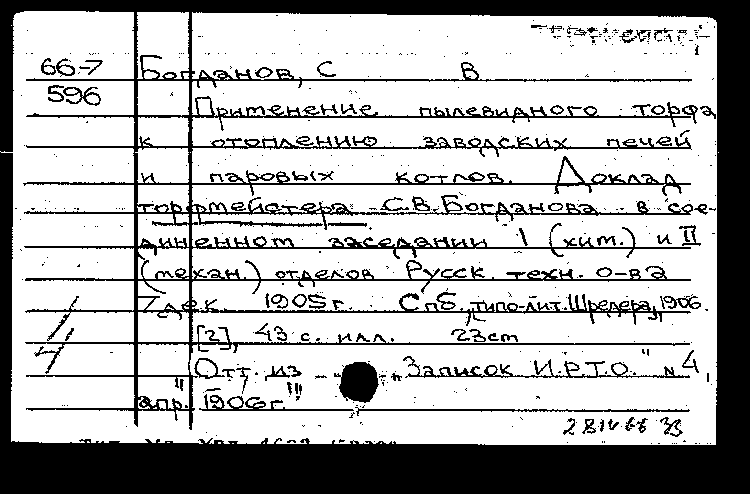 66-7 Богданов, С В
596 Применение пылевидного торфа
к отоплению заводских печей
и паровых котлов. Доклад
торфмейстера С.В.Богданова в сое-
диненном заседании I (хим.) и II
(механ.) отделов Русск. техн. о-ва
7 дек. 1905г. Спб., типо-лит. Шредера, 1906.
[2], 43 с. илл. 23см
Отт. из „Записок И.Р.Т.О." №4,
апр. 1906г."